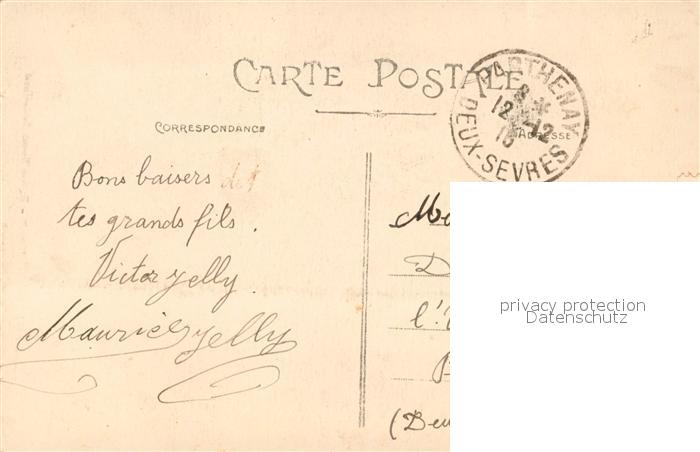 CARTE POSTALE
PARTHENAY
8 *
12-12
DEUX-SEVRES
CORRESPONDANCE
ADRESSE
Bons baisers de
tes grands fils.
Victor Jelly
Maurice Jelly
l'
(Deu
privacy protection
Datenschutz